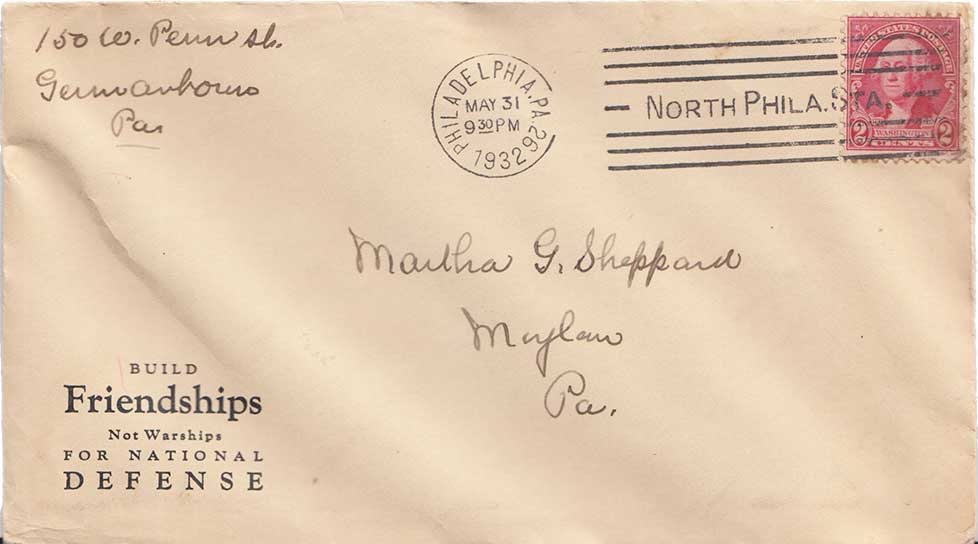 150 W. Penn st.
Germantown
Pa
PHILADELPHIA, PA. 29
MAY 31
9 30 PM
1932
NORTH PHILA. STA.
UNITED STATES POSTAGE
2 WASHINGTON 2
CENTS
Martha G. Sheppard
Moylan
Pa.
BUILD
Friendships
Not Warships
FOR NATIONAL
DEFENSE